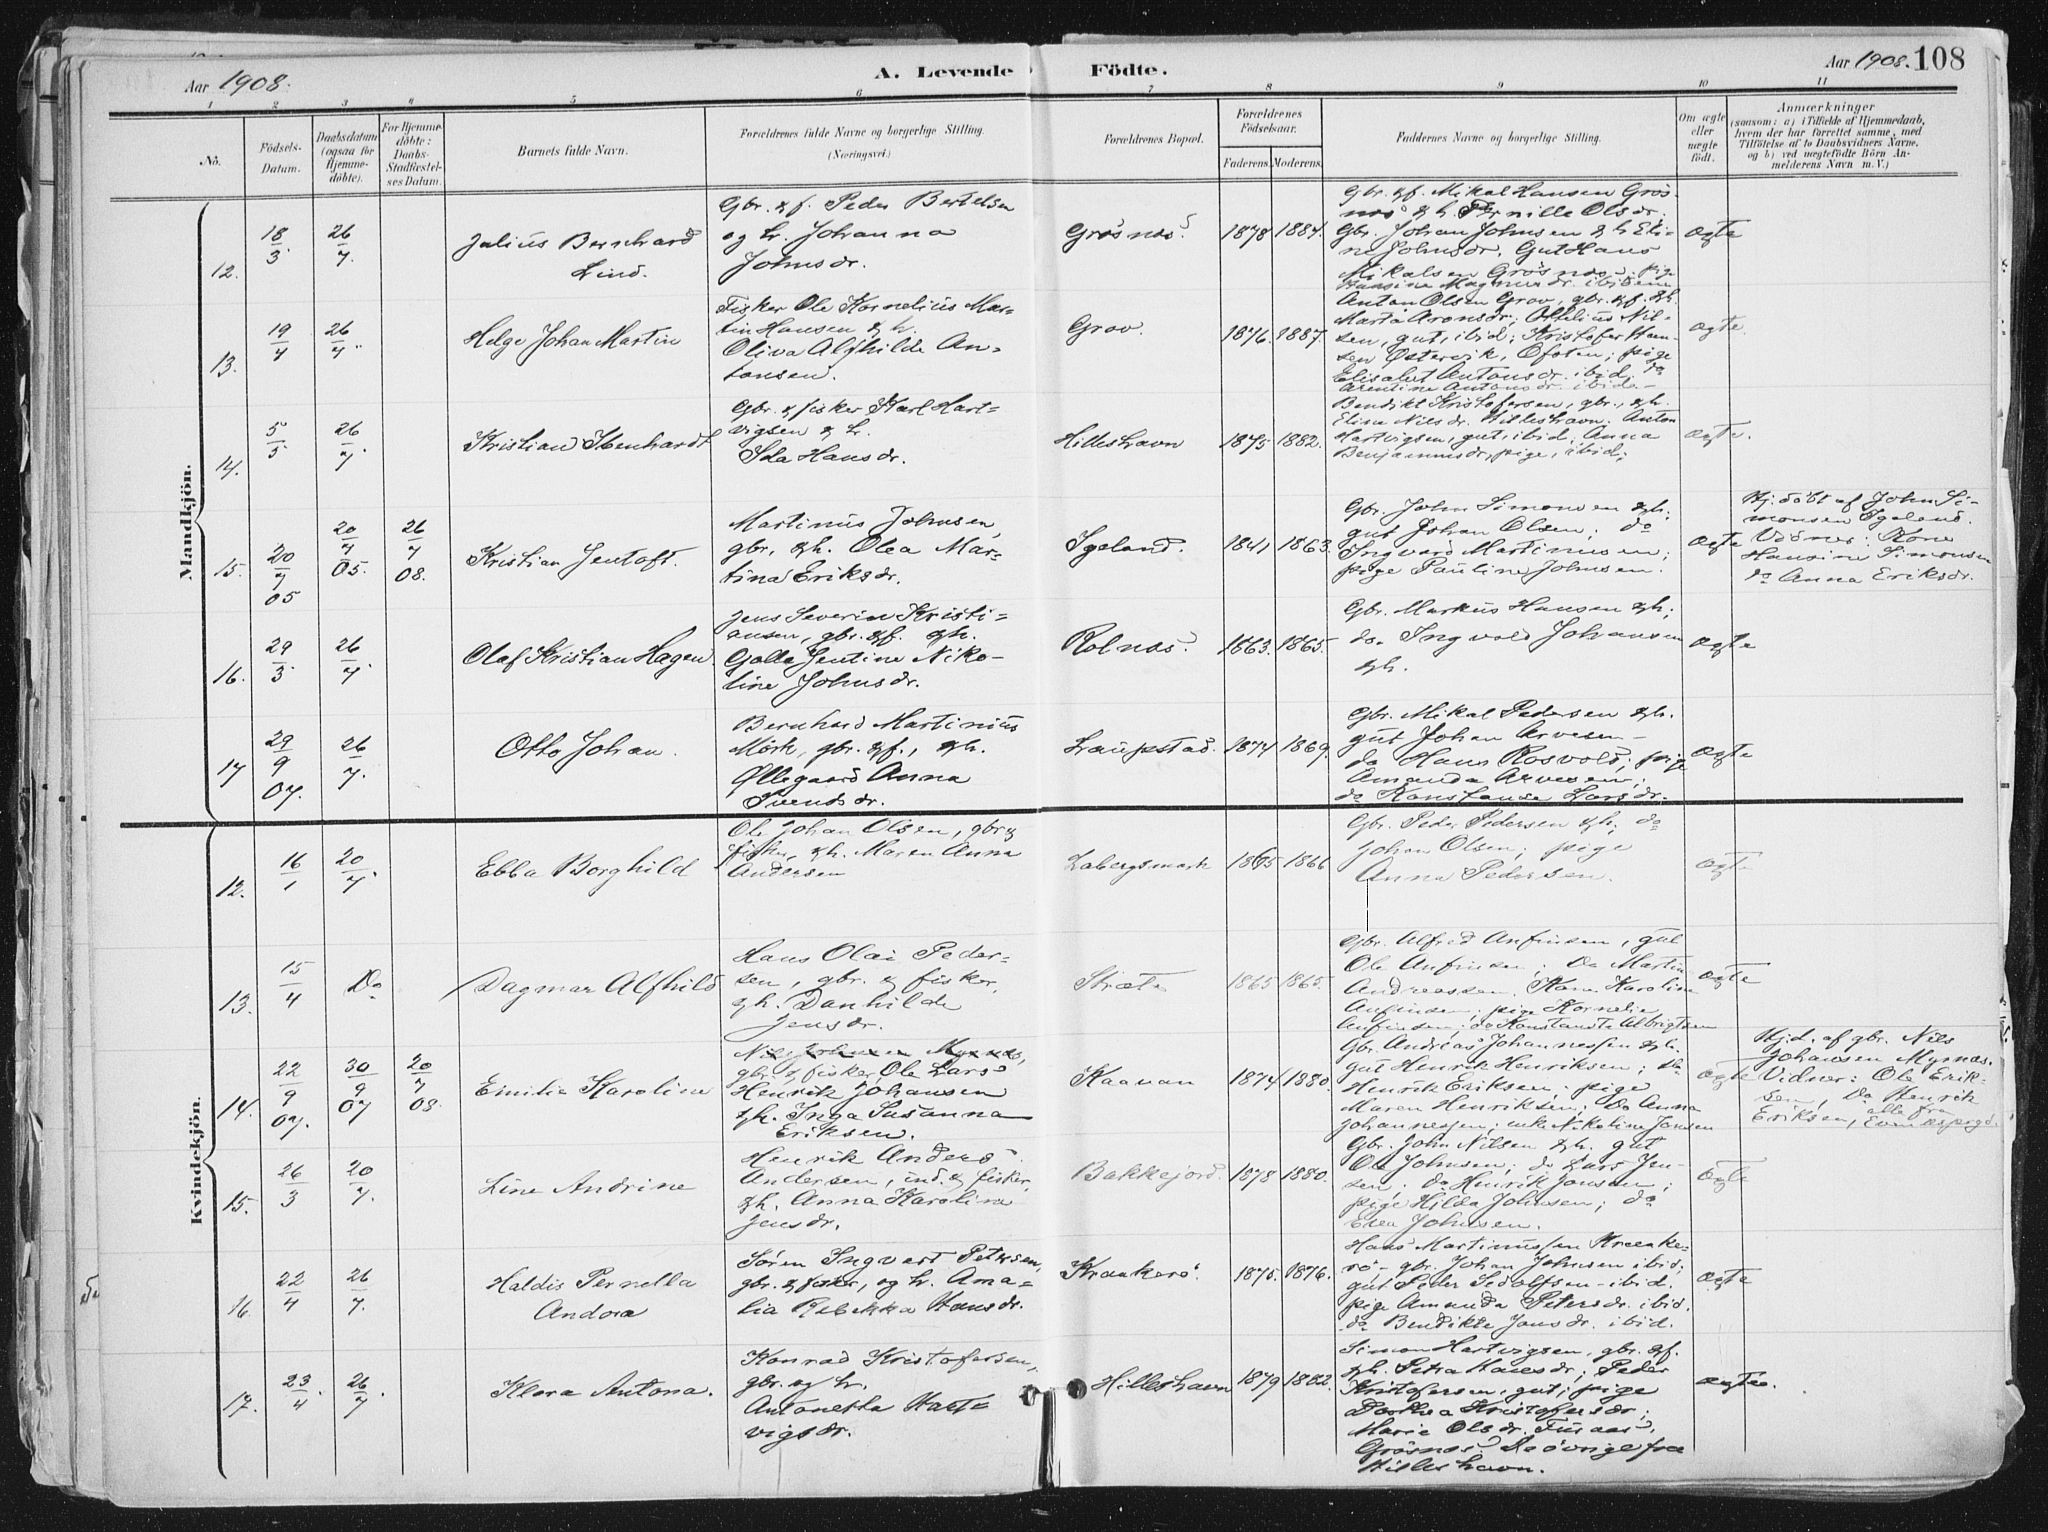 Aar 1908. A. Levende Födte. Aar 1908. 108
1 2 3 4 5 6 7 8 9 10 11
No. Födsels-Datum. Daabsdatum (ogsaa for Hjemme-döbte). For Hjemme-döbte: Daabs-Stadfæstel-ses Datum. Barnets fulde Navn. Forældrenes fulde Navne og borgerlige Stilling. (Næringsvei.) Forældrenes Bopæl. Forældrenes Födselsaar. Faderens. Moderens. Faddernes Navne og borgerlige Stilling. Om ægte eller uægte födt. Anmærkninger (saasom: a) i Tilfælde af Hjemmedaab, hvem der har forrettet samme, med Tilföielse af to Daabsvidners Navne, og b) ved uægtefödte Börn An-melderens Navn m. V.)
Mandkjön.
12. 18/3 26/7. Julius Bernhard Lind.
Gbr. & f. Peder Bertelsen
og h. Johanna
Johnsdr.
Grøsnæs. 1878 1884.
Gbr. & f. Mikal Hansen Grøs-
næs & h. Pernille Olsdr.
Gbr. Johan Johnsen & h. Eli-
ne Johnsdr. Gut Hans
Mikalsen Grøsnæs. pige
Hansine Magnusdr. ibidem
ægte
13. 19/4 26/7. Helge Johan Martin
Fisker Ole Kornelius Mar-
tin Hansen & h.
Oliva Alfhilde An-
tonsen.
Grov. 1876. 1887.
Anton Olsen Grov, gbr. & f. & h.
Marta Aronsdr; Ottelius Nil-
sen, gut, ibid; Kristofer Han-
sen Østervik, Ofoten; pige
Elisabet Antonsdr. ibid. do
Arentine Antonsdr. ibid.-
ægte.
14. 5/5 26/7. Kristian Stenhardt
Gbr. & fisker Karl Hart-
vigsen & h.
Ida Hansdr.
Hilleshavn 1875 1882.
Bendikt Kristofersen, gbr., & h.
Eline Nilsdr. Hilleshavn. Anton
Hartvigsen, gut, ibid. Anna
Benjaminsdr, pige, ibid;
ægte.
15. 20/7 05 20/7 05. 26/7 08. Kristian Jentoft.
Martinus Johnsen,
gbr, & h. Olea Mar-
tina Eriksdr.
Igeland. 1841 1863.
Gbr. John Simonsen & h;
gut Johan Olsen; do
Ingvard Martinusen;
pige Pauline Johnsen.
ægte
Hj. döbt af John Si-
monsen Igeland.
Vidner: Kone
Hansine Simonsen
do Anna Eriksdr.
16. 29/3 26/7. Olaf Kristian Hagen
Jens Severin Kristi-
ansen, gbr. & f. & h.
Golla Jentine Niko-
line Johnsdr.
Rolnæs. 1863. 1865.
Gbr. Markus Hansen & h;
do Ingvald Johansen
& h.
ægte
17 29/9 07. 26/7. Otto Johan.
Bernhard Martinius
Mørk, gbr. & f., & h.
Ollegaard Anna
Svendsdr.
Laupstad. 1874 1869.
Gbr. Mikal Pedersen & h.
gut Johan Arvesen-
do Hans Rosvold; pige
Amanda Arvesen;
do Konstanse Larsdr.
ægte
Kvindekjön.
12. 16/1 20/7. Ebba Borghild
Ole Johan Olsen, gbr &
fisker, & h. Maren Anna
Andersen
Labergsmark 1865 1866
Gbr. Peder Pedersen & h; do
Johan Olsen; pige
Anna Pedersen.
ægte
13. 15/4 Do Dagmar Alfhild
Hans Olai Peder-
sen, gbr. & fisker,
& h. Danhilde
Jensdr.
Stræte 1865 1865.
Gbr. Alfred Anfinsen, gut
Ole Anfinsen; Do Martin
Andreassen. Kone Karoline
Anfinsen; pige Kornelie
Anfinsen; do Konstanse Albrigtsen
ægte
14. 22/9 07. 30/9 07 20/7 08. Emilie Karoline
gbr. & fisker Ole Lars
Henrik Johansen
& h. Inga Susanna
Eriksen.
Kaanan 1874 1880.
Gbr. Andreas Johannessen & h.
gut Henrik Henriksen; do
Henrik Eriksen; pige
Maren Henriksen; Do Anna
Johannessen; enke Nikoline Jonsen
ægte
Hj. d. af gbr. Nils
Johansen Myrnæs.
Vidner: Ole Erik-
sen, Do Henrik
Eriksen, alle fra
15. 26/3 20/7. Line Andrine
Henrik Anders
Andersen, ind. & fisker,
& h. Anna Karoline
Jensdr.
Bakkejord. 1878 1880.
Gbr. John Nilsen & h. gut
Ole Johnsen; do Lars Jen-
sen; do Henrik Jonsen;
pige Hilda Johnsen; do
Johnsen.
ægte
16. 22/4 26/7. Haldis Pernella Andora
Søren Ingvart Petersen,
gbr. & fisker, og h. Ama-
lia Rebekka Hansdr.
Kraakerø. 1875. 1876.
Hans Martinussen Kraake-
rø- gbr. Johan Johnsen ibid;
gut Peder Sedolfsen - ibid,
pige Amanda Petersdr. ibid.
do Bendikte Jonsdr. ibid.
ægte
17. 23/4. 26/7 Klara Antona.
Konrad Kristofersen,
gbr. og h.
Antonetta Hart-
vigsdr.
Hilleshavn 1879 1882.
Simon Hartvigsen, gbr. & f.
& h. Petra Hansdr; Peder
Kristofersen, gut; pige
Dorthea Kristofersdr;
Marie Olsdr. Furaas,
Grøsnæs. De øvrige fra
Hilleshavn.
ægte.